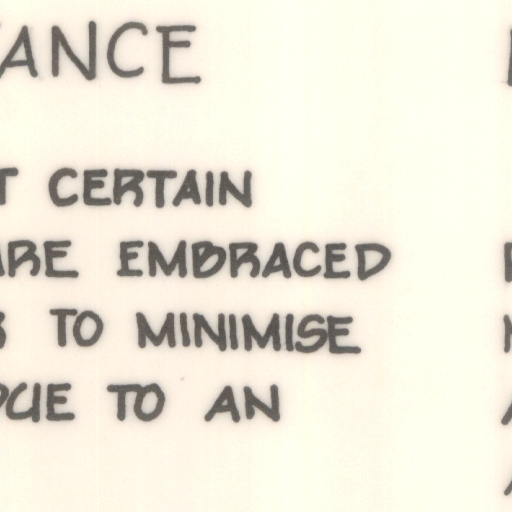 ANCE
CERTAIN
ARE EMBRACED
TO MINIMISE
DUE TO AN